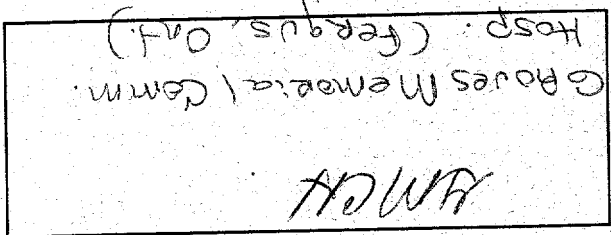 GMCH
GRoves MemoRial Comm.
Hosp. (FeRgus, Ont.)